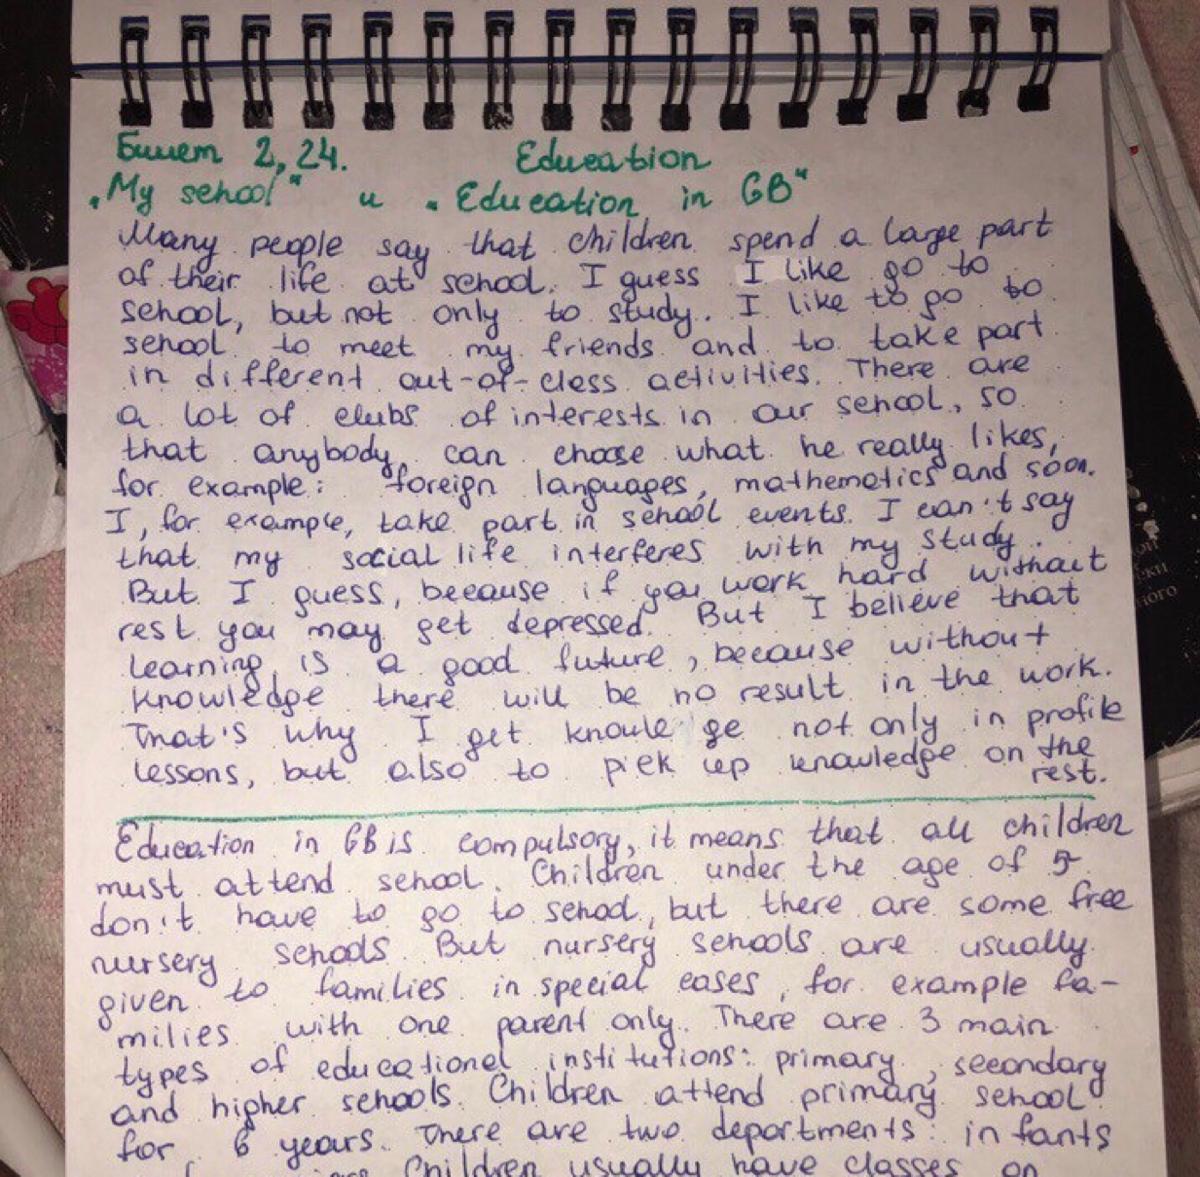 Билет 2,24. Education
„My school" и „Education in GB"
Many people say that children spend a large part
of their life at school. I guess I like go to
school, but not only to study. I like to go to
school to meet my friends and to take part
in different out-of-class activities. There are
a lot of clubs of interests in our school, so
that anybody can choose what he really likes,
for example: foreign languages, mathematics and soon.
I, for example, take part in school events. I can't say
that my social life interferes with my study.
But I guess, because if you work hard without
rest you may get depressed. But I believe that
learning is a good future, because without
knowledge there will be no result in the work.
That's why I get knowle ge not only in profile
lessons, but also to pick up knowledge on the
rest.
Education in GB is compulsory, it means that all children
must attend school. Children under the age of 5
don't have to go to school, but there are some free
nursery schools. But nursery schools are usually
given to families in special cases, for example fa-
milies with one parent only. There are 3 main
types of educational institutions: primary, secondary
and higher schools. Children attend primary school
for 6 years. There are two departments: infants
Children usually have classes on
ки
ного